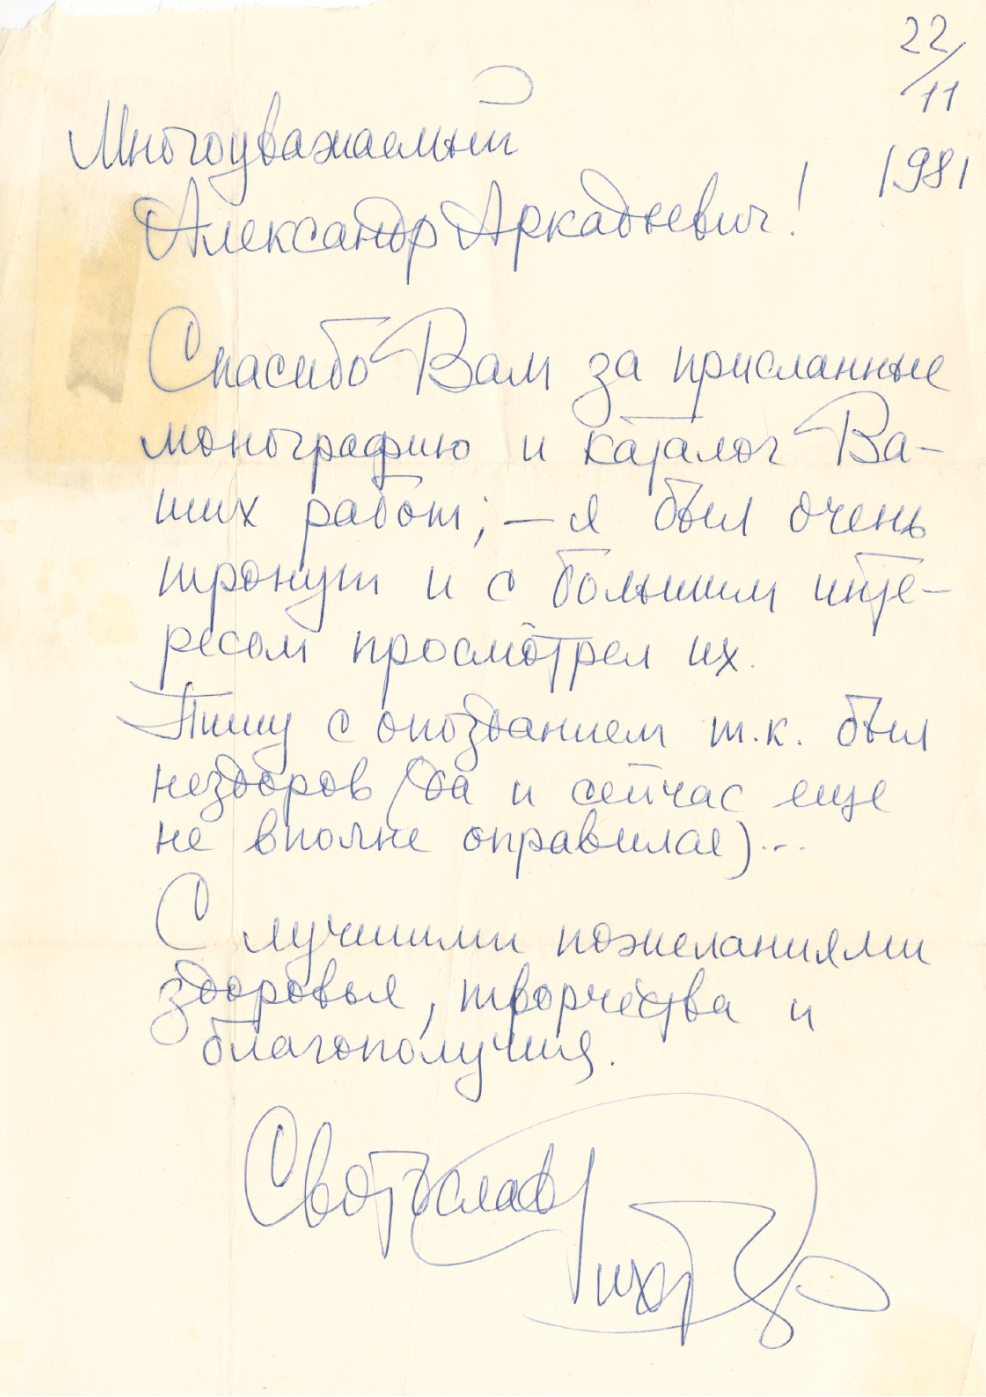 22/11
1981
Многоуважаемый
Александр Аркадьевич!
Спасибо Вам за присланные
монографию и каталог Ва-
ших работ; — я был очень
тронут и с большим инте-
ресом просмотрел их.
Пишу с опозданием т.к. был
нездоров (да и сейчас еще
не вполне оправился)...
С лучшими пожеланиями
здоровья, творчества и
благополучия.
Святослав
Рихтер